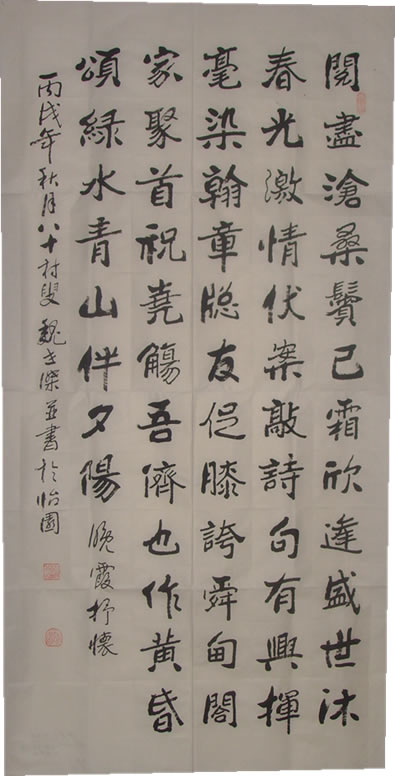 閱盡滄桑鬢已霜欣逢盛世沐
春光激情伏案敲詩句有興揮
毫染翰章牕友促膝誇舜甸閤
家聚首祝堯觴吾儕也作黃昏
頌綠水青山伴夕陽 晚霞抒懷
丙戌年秋月八十村叟魏傑並書於怡園